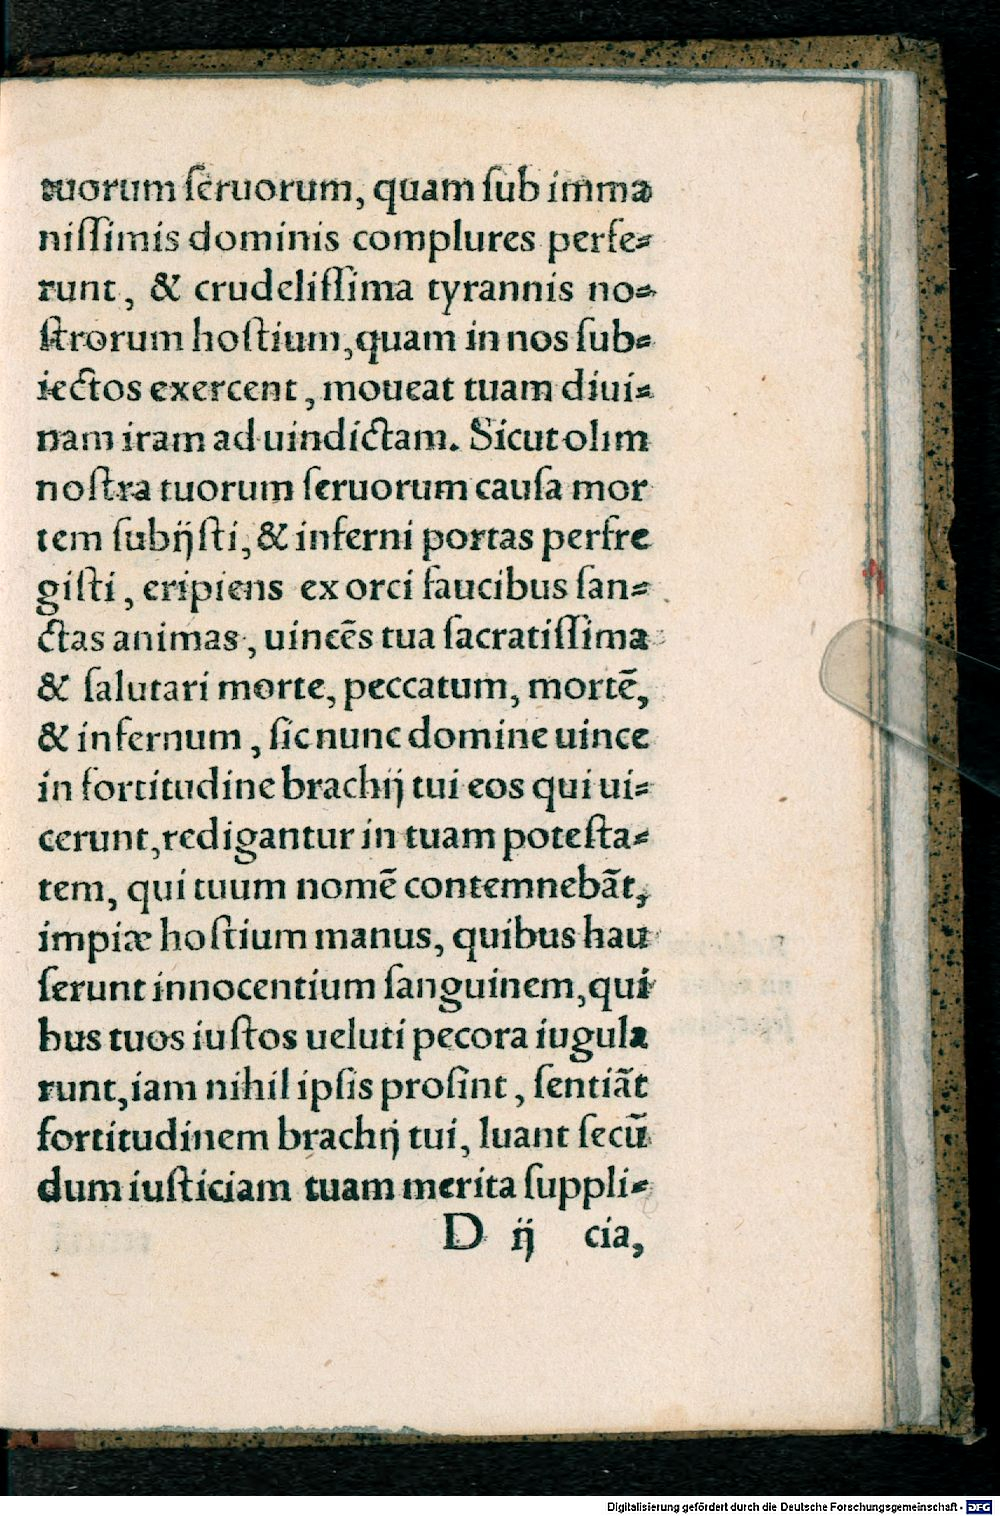 tuorum ſeruorum, quam ſub imma
niſſimis dominis complures perfe⸗
runt, & crudeliſſima tyrannis no⸗
ſtrorum hoſtium, quam in nos ſub⸗
iectos exercent, moueat tuam diui⸗
nam iram ad uindictam. Sicut olim
noſtra tuorum ſeruorum cauſa mor
tem ſubijſti, & inferni portas perfre
giſti, eripiens ex orci faucibus ſan⸗
ctas animas, uincẽs tua ſacratiſſima
& ſalutari morte, peccatum, mortẽ,
& infernum, ſic nunc domine uince
in fortitudine brachij tui eos qui ui⸗
cerunt, redigantur in tuam poteſta⸗
tem, qui tuum nomẽ contemnebãt,
impiæ hoſtium manus, quibus hau
ſerunt innocentium ſanguinem, qui
bus tuos iuſtos ueluti pecora iugula
runt, iam nihil ipſis proſint, ſentiãt
fortitudinem brachij tui, luant ſecũ
dum iuſticiam tuam merita ſuppli⸗
D ij cia,
Digitalisierung gefördert durch die Deutsche Forschungsgemeinschaft - DFG